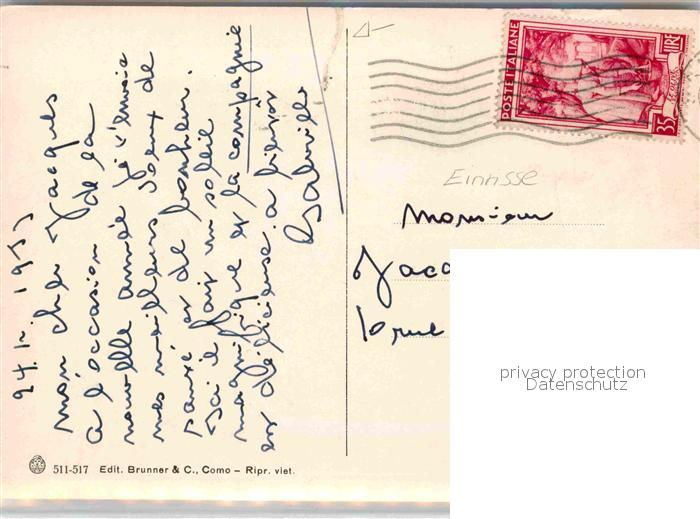 24.12.1953
mon cher Jacques
à l'occasion de la
nouvelle année je t'envoie
mes meilleurs voeux de
santé et de bonheur.
Ici il fait un soleil
magnifique et la compagnie
est délicieuse. a bientôt
511-517 Edit. Brunner & C., Como – Ripr. viet.
POSTE ITALIANE
LIRE
35
Einrisse
Monsieur
rue
privacy protection
Datenschutz